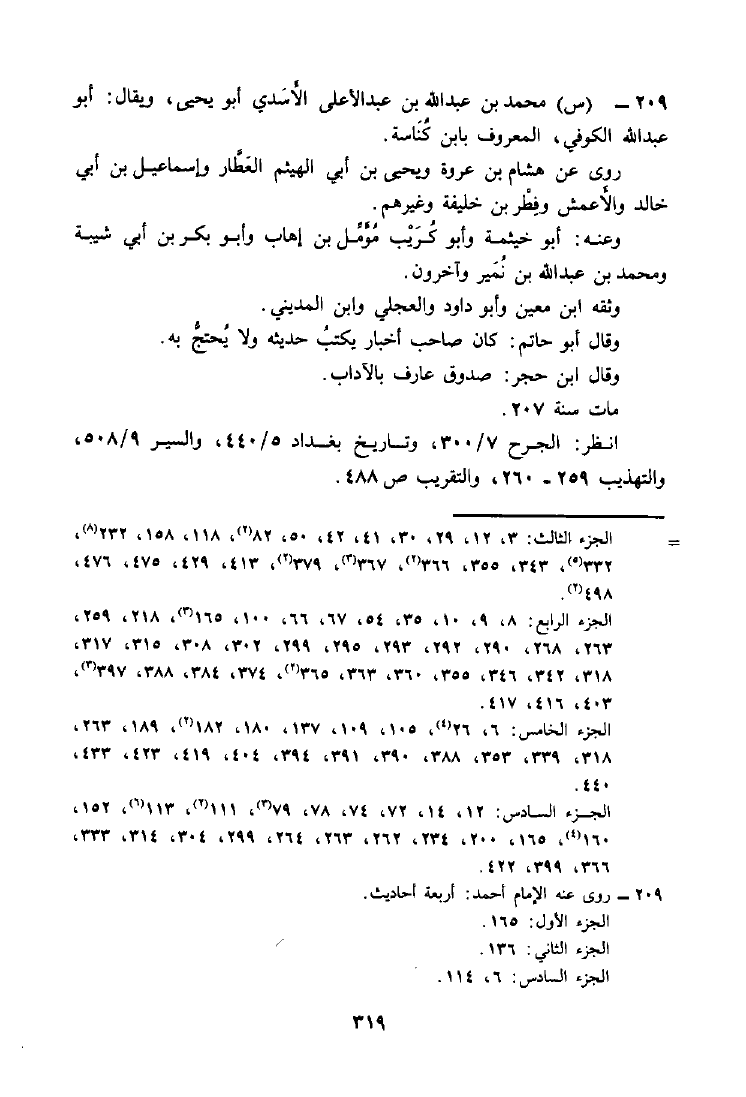 ٢٠٩ ـ (س) محمد بن عبدالله بن عبدالأعلى الأَسَدي أبو يحيى، ويقال: أبو
عبدالله الكوفي، المعروف بابن كُنَاسة.
روى عن هشام بن عروة ويحيى بن أبي الهيثم العَطَّار وإسماعيل بن أبي
خالد والأَعمش وفِطْر بن خليفة وغيرهم.
وعنه: أبو خيثمة وأبو كُرَيْب مُؤَمَّل بن إهاب وأبو بكر بن أبي شيبة
ومحمد بن عبدالله بن نُمَير وآخرون.
وثقه ابن معين وأبو داود والعجلي وابن المديني.
وقال أبو حاتم: كان صاحب أخبار يكتبُ حديثه ولا يُحتجُّ به.
وقال ابن حجر: صدوق عارف بالآداب.
مات سنة ٢٠٧.
انظر: الجرح ٣٠٠/٧، وتاريخ بغداد ٤٤٠/٥، والسير ٥٠٨/٩،
والتهذيب ٢٥٩ - ٢٦٠، والتقريب ص ٤٨٨.
= الجزء الثالث: ٣، ١٢، ٢٩، ٣٠، ٤١، ٤٢، ٥٠، ٨٢(٢)، ١١٨، ١٥٨، ٢٣٢(٨)،
٣٣٢(٥)، ٣٤٣، ٣٥٥، ٣٦٦(٢)، ٣٦٧(٣)، ٣٧٩(٢)، ٤١٣، ٤٢٩، ٤٧٥، ٤٧٦،
٤٩٨(٢).
الجزء الرابع: ٨، ٩، ١٠، ٣٥، ٥٤، ٦٧، ٦٦، ١٠٠، ١٦٥(٣)، ٢١٨، ٢٥٩،
٢٦٣، ٢٦٨، ٢٩٠، ٢٩٢، ٢٩٣، ٢٩٥، ٢٩٩، ٣٠٢، ٣٠٨، ٣١٥، ٣١٧،
٣١٨، ٣٤٢، ٣٤٦، ٣٥٥، ٣٦٠، ٣٦٣، ٣٦٥(٢)، ٣٧٤، ٣٨٤، ٣٨٨، ٣٩٧(٣)،
٤٠٣، ٤١٦، ٤١٧.
الجزء الخامس: ٦، ٢٦(٤)، ١٠٥، ١٠٩، ١٣٧، ١٨٠، ١٨٢(٢)، ١٨٩، ٢٦٣،
٣١٨، ٣٣٩، ٣٥٣، ٣٨٨، ٣٩٠، ٣٩١، ٣٩٤، ٤٠٤، ٤١٩، ٤٢٣، ٤٣٣،
٤٤٠.
الجزء السادس: ١٢، ١٤، ٧٢، ٧٤، ٧٨، ٧٩(٣)، ١١١(٢)، ١١٣(٦)، ١٥٢،
١٦٠(٤)، ١٦٥، ٢٠٠، ٢٣٤، ٢٦٢، ٢٦٣، ٢٦٤، ٢٩٩، ٣٠٤، ٣١٤، ٣٣٣،
٣٦٦، ٣٩٩، ٤٢٢.
٢٠٩ ـ روى عنه الإمام أحمد: أربعة أحاديث.
الجزء الأول: ١٦٥.
الجزء الثاني: ١٣٦.
الجزء السادس: ٦، ١١٤.
٣١٩